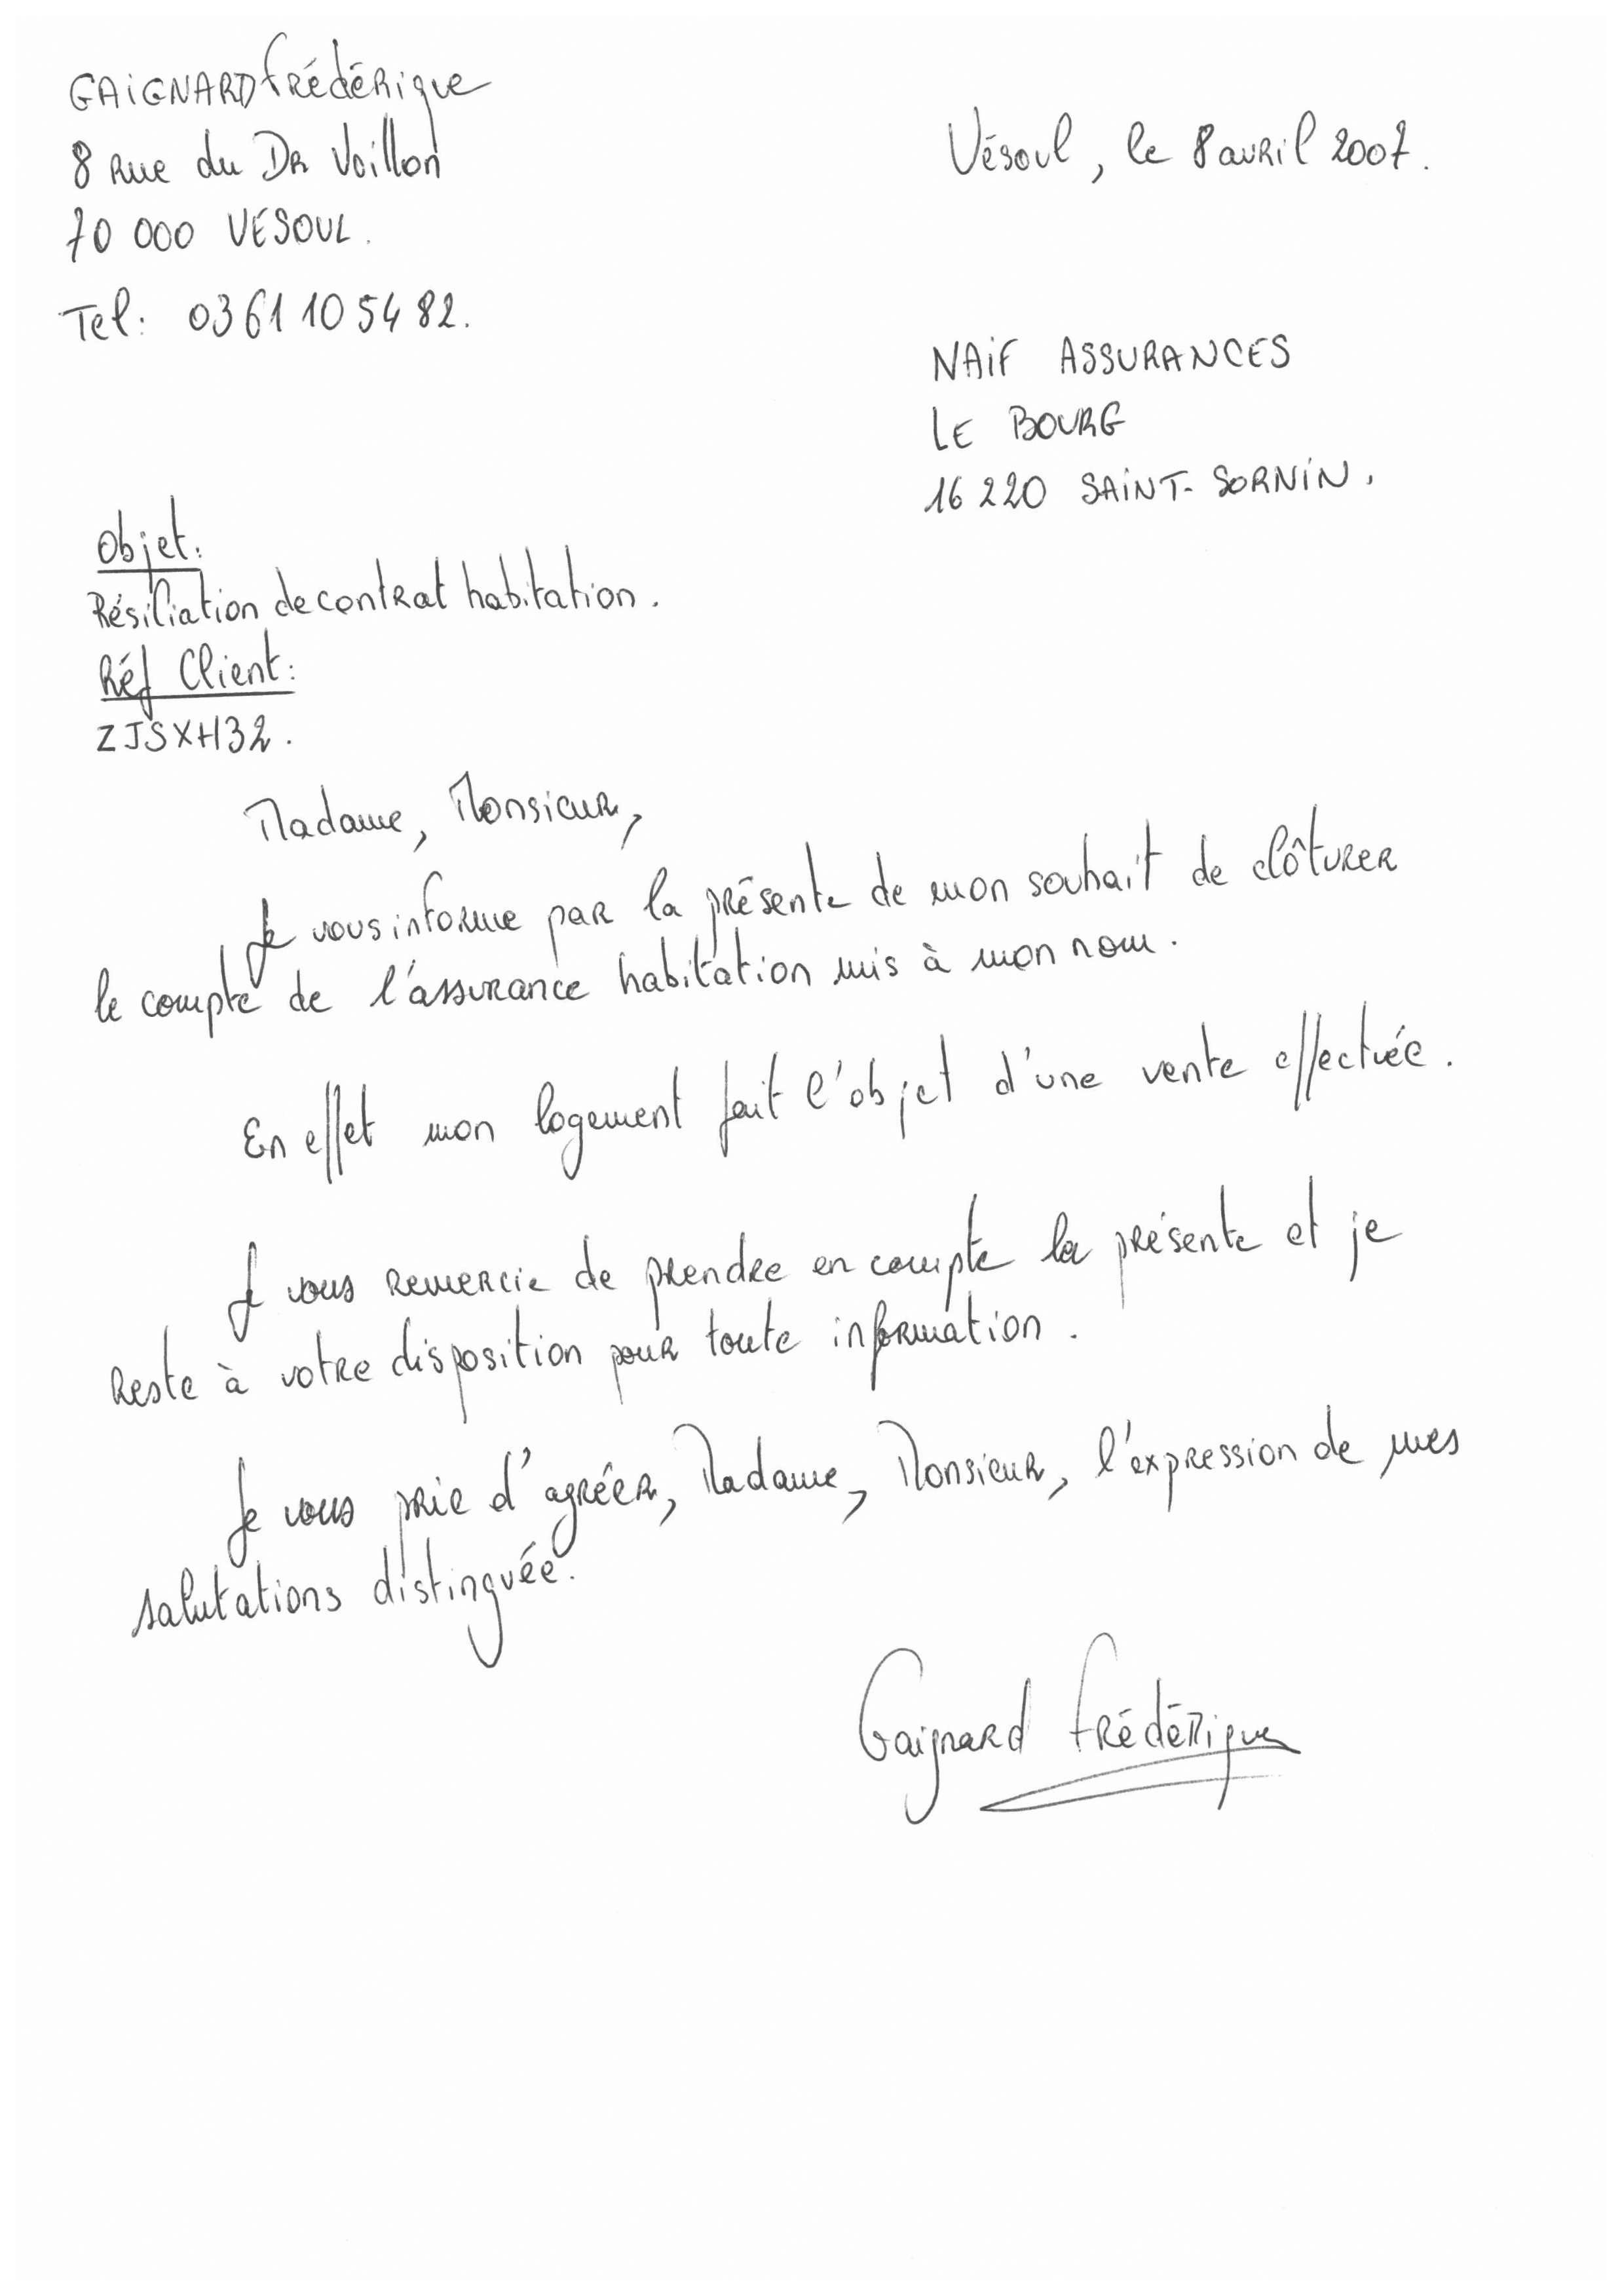 GAIGNARD Frédérique
8 Rue du DR Voillon
70 000 VESOUL.
Tel: 03 61 10 54 82.
Vésoul, le 8 avril 2007.
NAIF ASSURANCES
LE BOURG
16 220 SAINT-SORNIN.
Objet:
Résiliation de contrat habitation.
Réf Client:
ZJSXH32.
Madame, Monsieur,
Je vous informe par la présente de mon souhait de clôturer
le compte de l'assurance habitation mis à mon nom.
En effet mon logement fait l'objet d'une vente effectuée.
Je vous remercie de prendre en compte la présente et je
reste à votre disposition pour toute information.
Je vous prie d'agréer, Madame, Monsieur, l'expression de mes
salutations distinguée.
Gaignard Frédérique